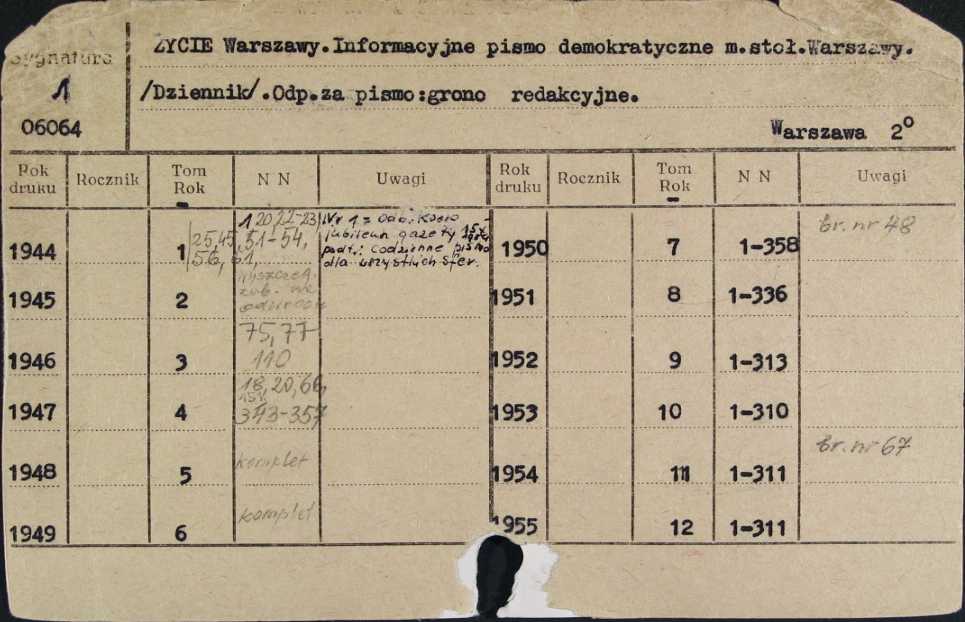 ŻYCIE Warszawy.Informacyjne pismo demokratyczne m.stoł.Warszawy.
Sygnatura
1
/Dziennik/.Odp.za pismo:grono redakcyjne.
06064
Warszawa 2°
Rok druku Rocznik Tom Rok N N Uwagi Rok druku Rocznik Tom Rok N N Uwagi
1944 1 1 20,22-23,
25,45,51-54,
56,61,
Nr 1 = Odb. ksero
jubileun gazety
podt.: Codzienne pismo
dla wszystkich sfer.
1950 7 1-358 br. nr 48
1945 2
1951 8 1-336
1946 3 75,77
110
1952 9 1-313
1947 4 18,20,66,
151,
343-357
1953 10 1-310
1948 5 komplet
1954 11 1-311 br. nr 67
1949 6 komplet
1955 12 1-311